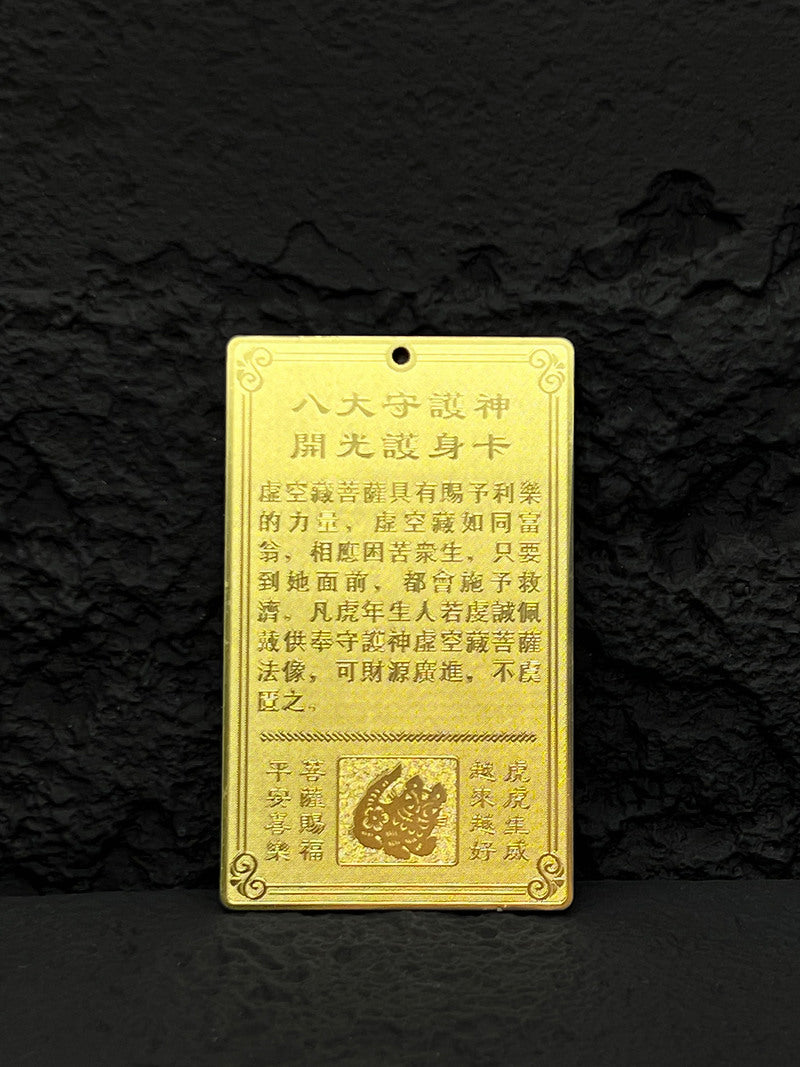 八大守護神
開光護身卡
虛空藏菩薩具有賜予利樂
的力量，虛空藏如同富
翁，相應因苦衆生，只要
到她面前，都會施予救
濟。凡虎年生人若虔誠佩
戴供奉守護神虛空藏菩薩
法像，可財源廣進，不虞
匱之。
虎虎生威
越來越好
菩薩賜福
平安喜樂